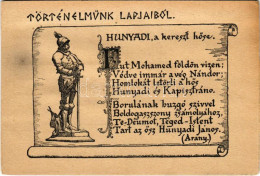 TÖRTÉNELMÜNK LAPJAIBÓL.
HUNYADI, a kereszt hőse.
Fut Mohamed földön vizen;
Védve immár a vég Nándor;
Homlokát istörli a hős
Hunyadi és Kapisztráno.
Borulának buzgó szivvel
Boldogasszony zsámolyához,
Te-Deumot, Téged-Istent
Tart az ősz Hunyadi János.
(Arany.)